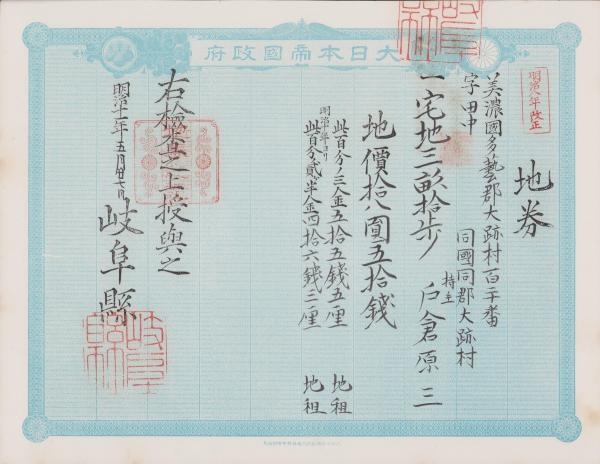 大日本帝國政府
明治八年改正
地券
美濃國多藝郡大跡村百二十番
字田中
同國同郡大跡村
一宅地三畝拾歩
持主 戸倉原三
地價拾八圓五拾錢
此百分ノ三金五拾五錢五厘 地租
明治十年ヨリ
此百分ノ貳半金四拾六錢三厘 地租
右檢査之上授與之
明治十一年五月廿七日
岐阜縣